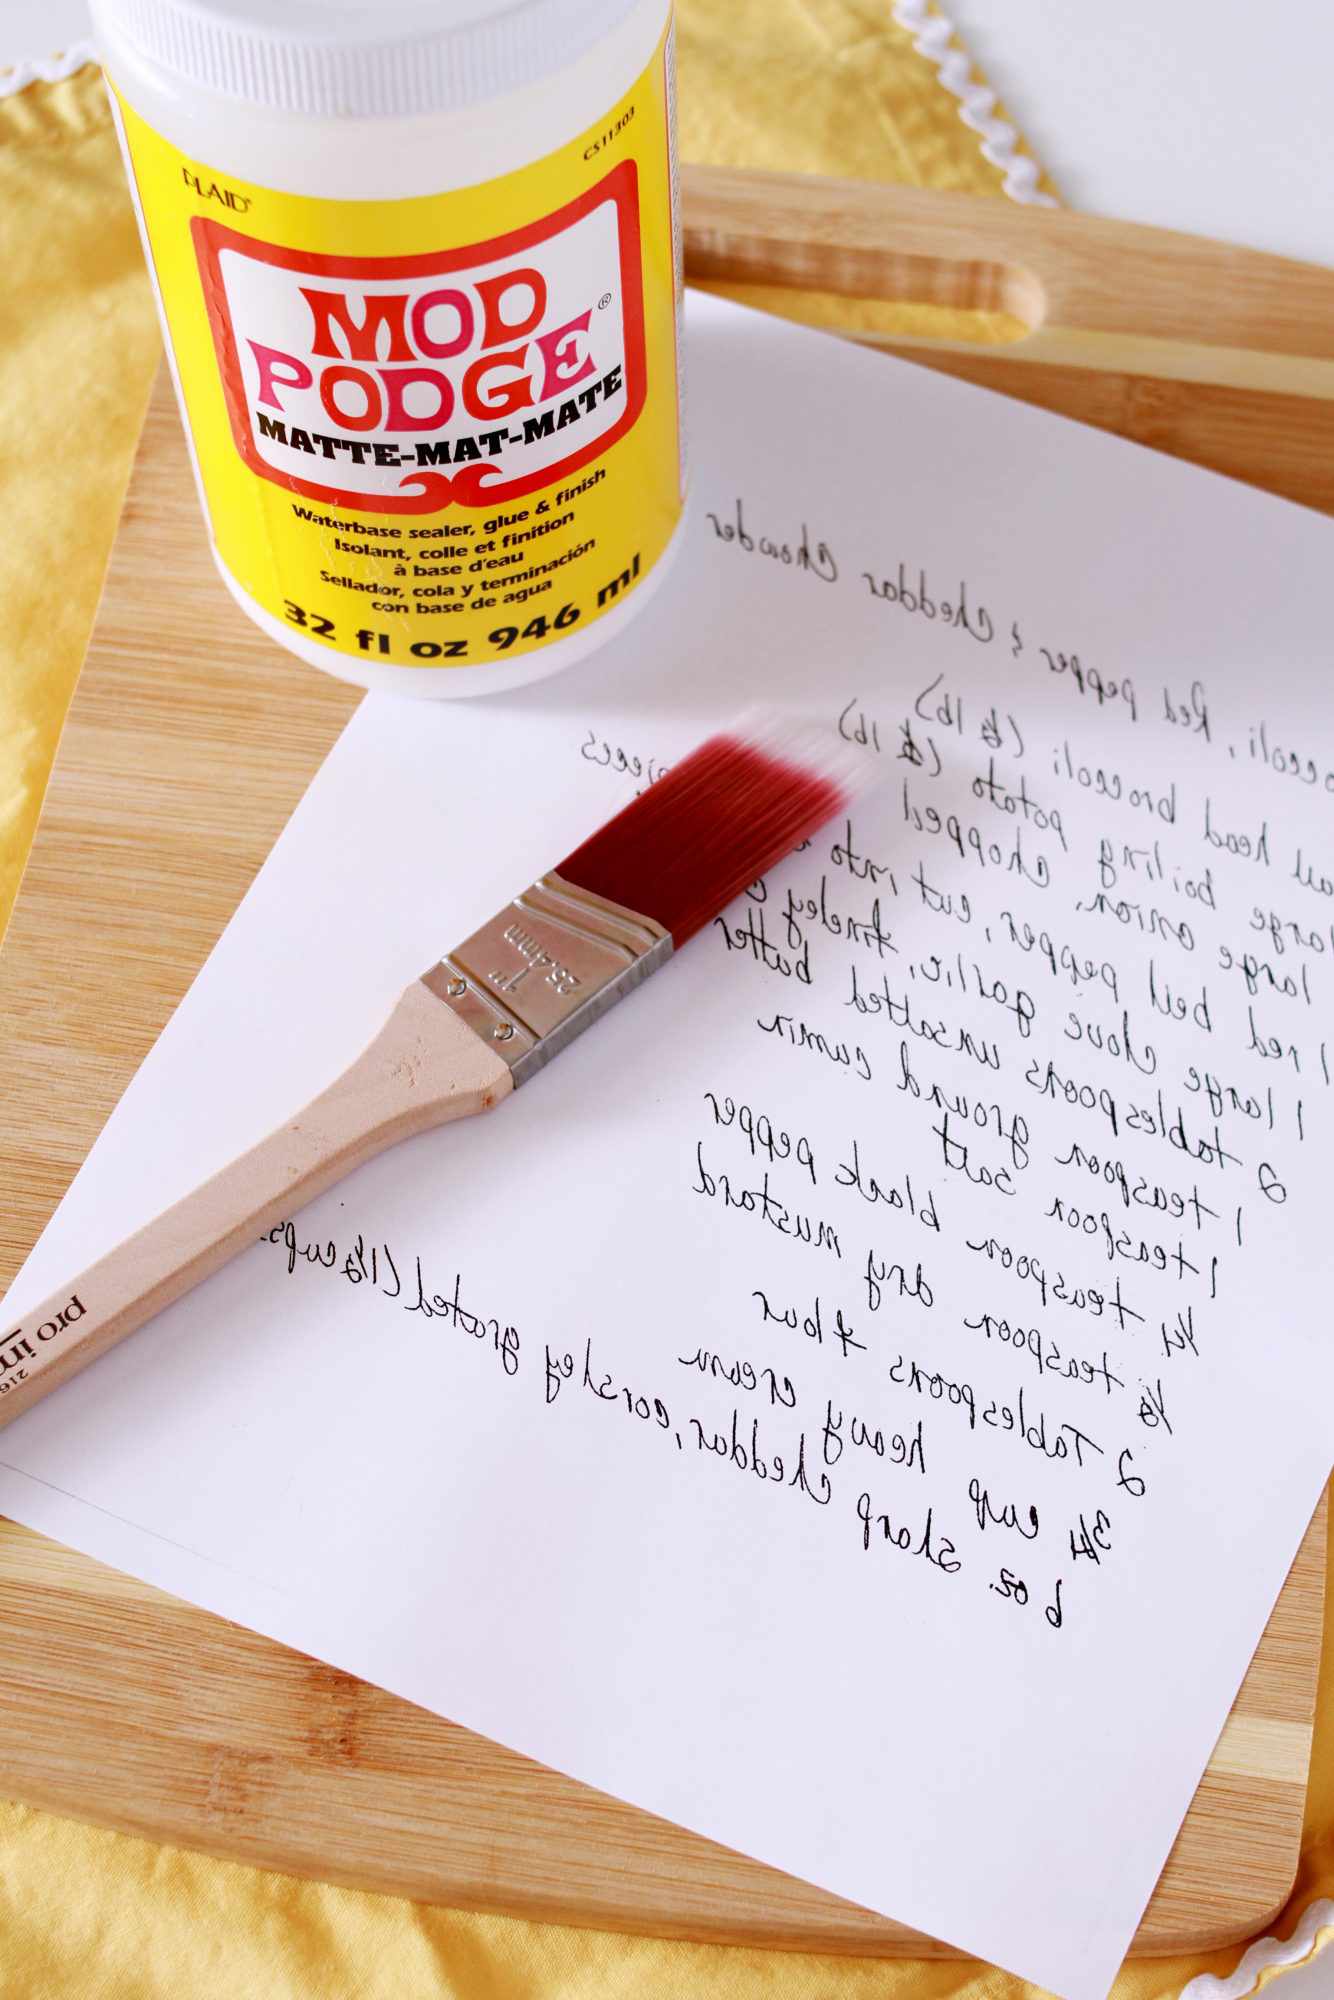 PLAID®
CS11303
MOD
PODGE®
MATTE-MAT-MATE
Waterbase sealer, glue & finish
Isolant, colle et finition
à base d'eau
Sellador, cola y terminación
con base de agua
32 fl oz 946 ml
Red pepper & Cheddar Chowder
head broccoli (½ lb)
large boiling potato (½ lb)
large onion, chopped
1 red bell pepper, cut into pieces
1 large clove garlic, fineley
2 tablespoons unsalted butter
1 teaspoon ground cumin
1 teaspoon salt
¼ teaspoon black pepper
⅛ teaspoon dry mustard
2 Tablespoons flour
¾ cup heavy cream
6 oz. sharp cheddar, corsley grated (1½ cups
1"
25.4mm
pro im
216